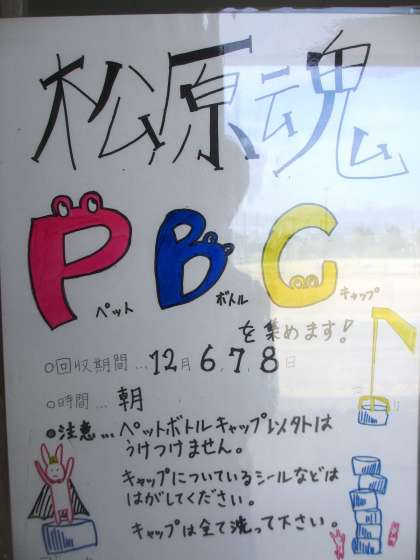 松原魂
P B C
ペット ボトル キャップ
を集めます!
○回収期間…12月6,7,8日
○時間…朝
◎注意…ペットボトルキャップ以外は
うけつけません。
キャップについているシールなどは
はがしてください。
キャップは全て洗って下さい。